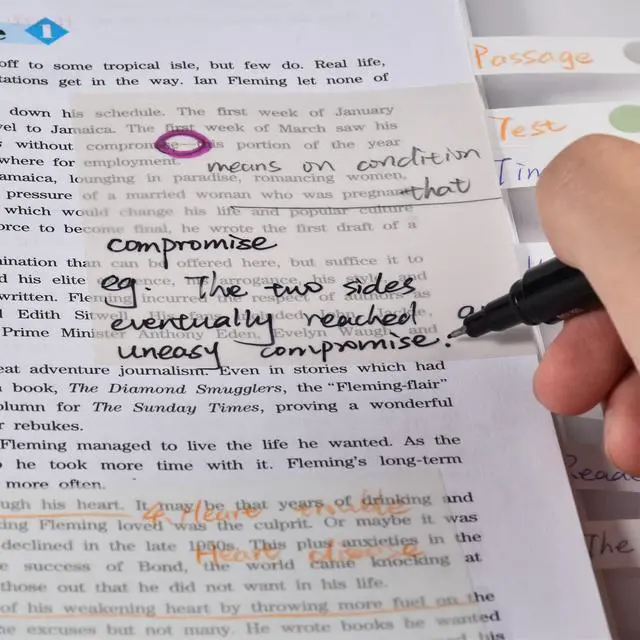 e 1
off to some tropical isle, but few do. Real life,
tations get in the way. Ian Fleming let none of
down his schedule. The first week of January
vel to Jamaica. The first week of March saw his
s without compromise this portion of the year
where for employment.
means on condition
amaica, lounging in paradise, romancing women,
pressure of a married woman who was pregnant
that
which would change his life and popular culture
orce to become final, he wrote the first draft of a
compromise
mination than can be offered here, but suffice it to
eg. The two sides
d his elite arrogance, his style and
written. Fleming incurred the respect of authors as
d Edith Sitwell.
eventually reached an
Prime Minister Anthony Eden, Evelyn Waugh and
uneasy compromise.
eat adventure journalism. Even in stories which had
book, The Diamond Smugglers, the “Fleming-flair”
olumn for The Sunday Times, proving a wonderful
r rebukes.
Fleming managed to live the life he wanted. As the
he took more time with it. Fleming's long-term
more often.
ugh his heart. It may be that years of drinking and
king Fleming loved was the culprit. Or maybe it was
declined in the late 1950s. This plus anxieties in the
Heart disease
e success of Bond, the world came knocking at
those out that he did not want in his life.
of his weakening heart by throwing more fuel on the
e excuses but not many. He wrote books he wanted
Passage
Test
The